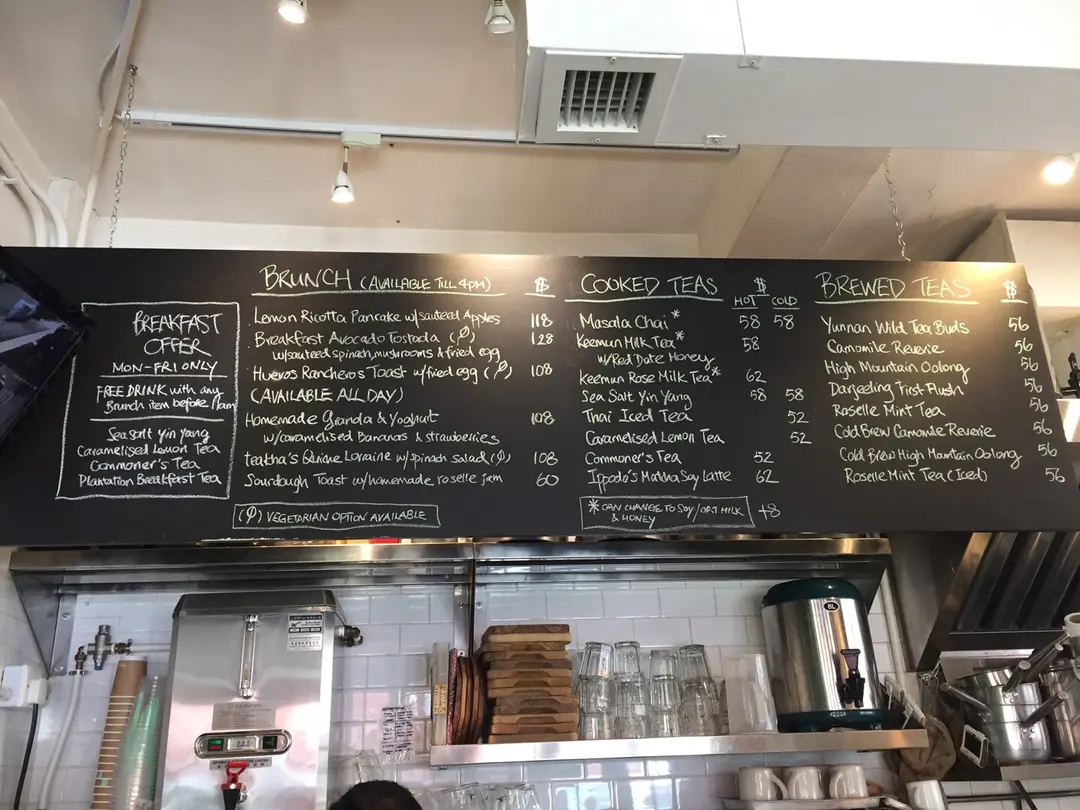 BREAKFAST
OFFER
MON-FRI ONLY
FREE DRINK with any
Brunch item before 11am
Sea Salt Yin Yang
Caramelised Lemon Tea
Commoner's Tea
Plantation Breakfast Tea
BRUNCH (AVAILABLE TILL 4PM) $
Lemon Ricotta Pancake w/sautéed Apples 118
Breakfast Avocado Tostada ( ) 128
w/sauteed spinach, mushrooms & fried egg
Hueros Rancheros Toast w/fried egg ( ) 108
(AVAILABLE ALL DAY)
Homemade Granola & Yoghurt 108
w/caramelised Bananas & strawberries
teakha's Quiche Lorraine w/spinach salad ( ) 108
Sourdough Toast w/homemade roselle jam 60
( ) VEGETARIAN OPTION AVAILABLE
COOKED TEAS $
HOT COLD
Masala Chai * 58 58
Keemun Milk Tea * 58
w/Red Date Honey
Keemun Rose Milk Tea * 62
Sea Salt Yin Yang 58 58
Thai Iced Tea 52
Caramelised Lemon Tea 52
Commoner's Tea 52
Ippodo's Matcha Soy Latte 62
* CAN CHANGE TO SOY/OAT MILK +8
& HONEY
BREWED TEAS $
Yunnan Wild Tea Buds 56
Camomile Reverie 56
High Mountain Oolong 56
Darjeeling First Flush 56
Roselle Mint Tea 56
Cold Brew Camomile Reverie 56
Cold Brew High Mountain Oolong 56
Roselle Mint Tea (Iced) 56
8L